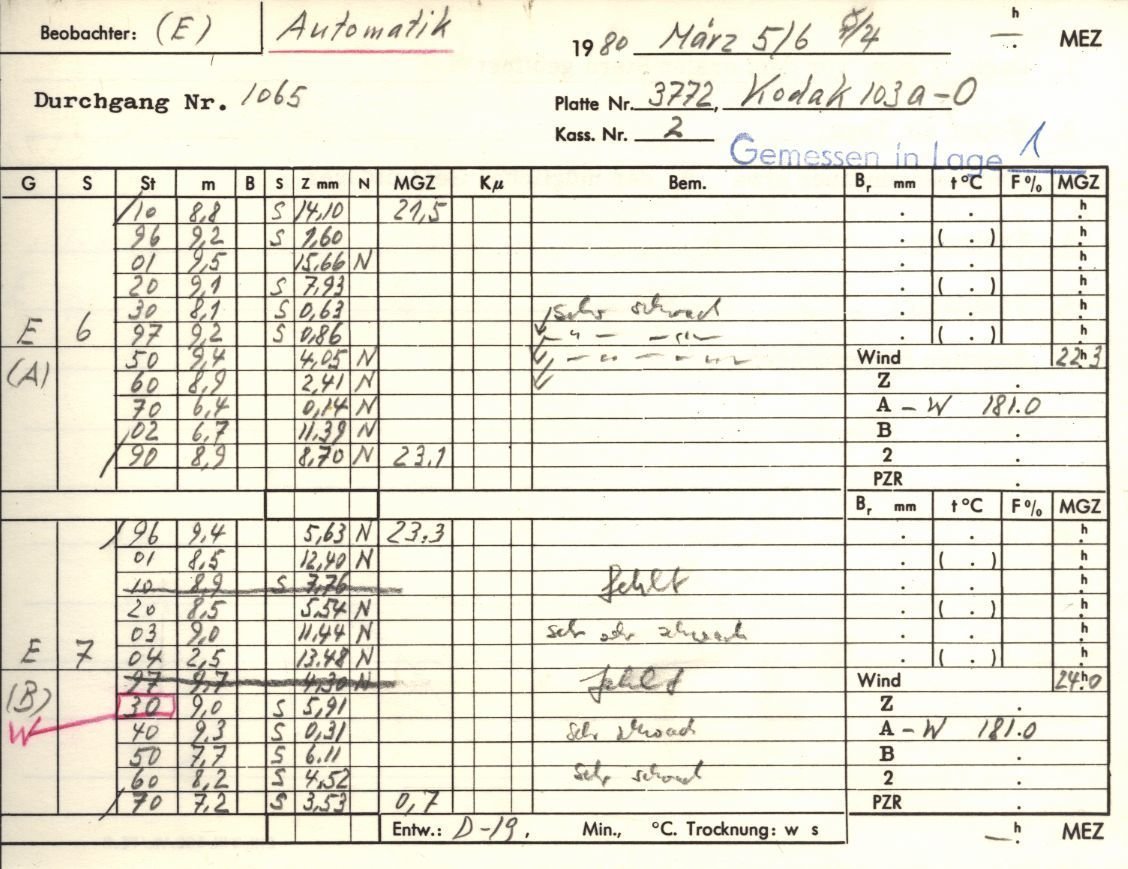 Beobachter: (E) Automatik 1980 März 5/6 h MEZ
Durchgang Nr. 1065 Platte Nr. 3772, Kodak 103a-O
Kass. Nr. 2
Gemessen in Lage 1
G S St m B S Z mm N MGZ Kμ Bem. Br mm t °C F% MGZ
10 8,8 S 14,10 21,5 . . h
96 9,2 S 1,60 . ( . ) h
01 9,5 15,66 N . . h
20 9,1 S 7,93 . ( . ) h
30 8,1 S 0,63 sehr schwach . . h
E 6 97 9,2 S 0,86 " — " . ( . ) h
(A) 50 9,4 4,05 N " — " Wind 22h3
60 8,9 2,41 N Z .
70 6,4 0,14 N A - W 181.0
02 6,7 11,39 N B .
90 8,9 8,70 N 23.1 2 .
PZR .
Br mm t °C F% MGZ
96 9,4 5,63 N 23.3 . . h
01 8,5 12,40 N . ( . ) h
10 8,9 S 7,76 fehlt . . h
20 8,5 5,54 N . ( . ) h
03 9,0 11,44 N sehr sehr schwach . . h
E 7 04 2,5 13.48 N . ( . ) h
(B) 97 9,7 4,30 N fehlt Wind 24h0
W 30 9,0 S 5,91 Z .
40 9,3 S 0,31 sehr schwach A - W 181.0
50 7,7 S 6.11 B .
60 8,2 S 4,52 sehr schwach 2 .
70 7,2 S 3,53 0,7 PZR .
Entw.: D-19, Min., °C. Trocknung: w s h MEZ